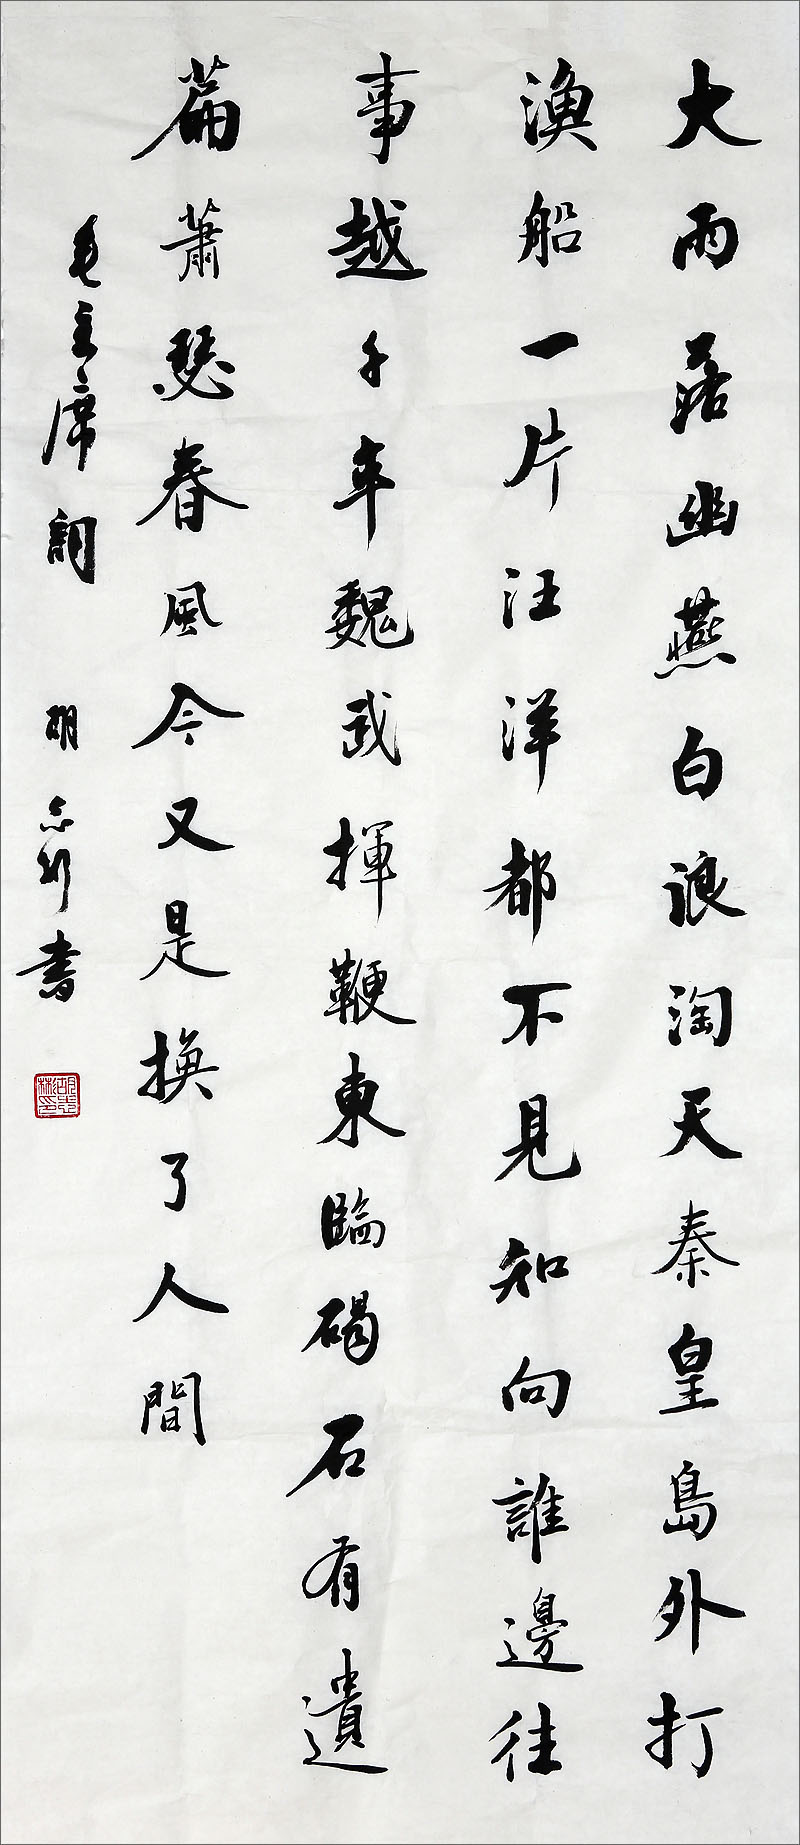 大雨落幽燕白浪淘天秦皇島外打
漁船一片汪洋都不見知向誰邊往
事越千年魏武揮鞭東臨碣石有遺
篇蕭瑟春風今又是換了人間
毛主席詞 書